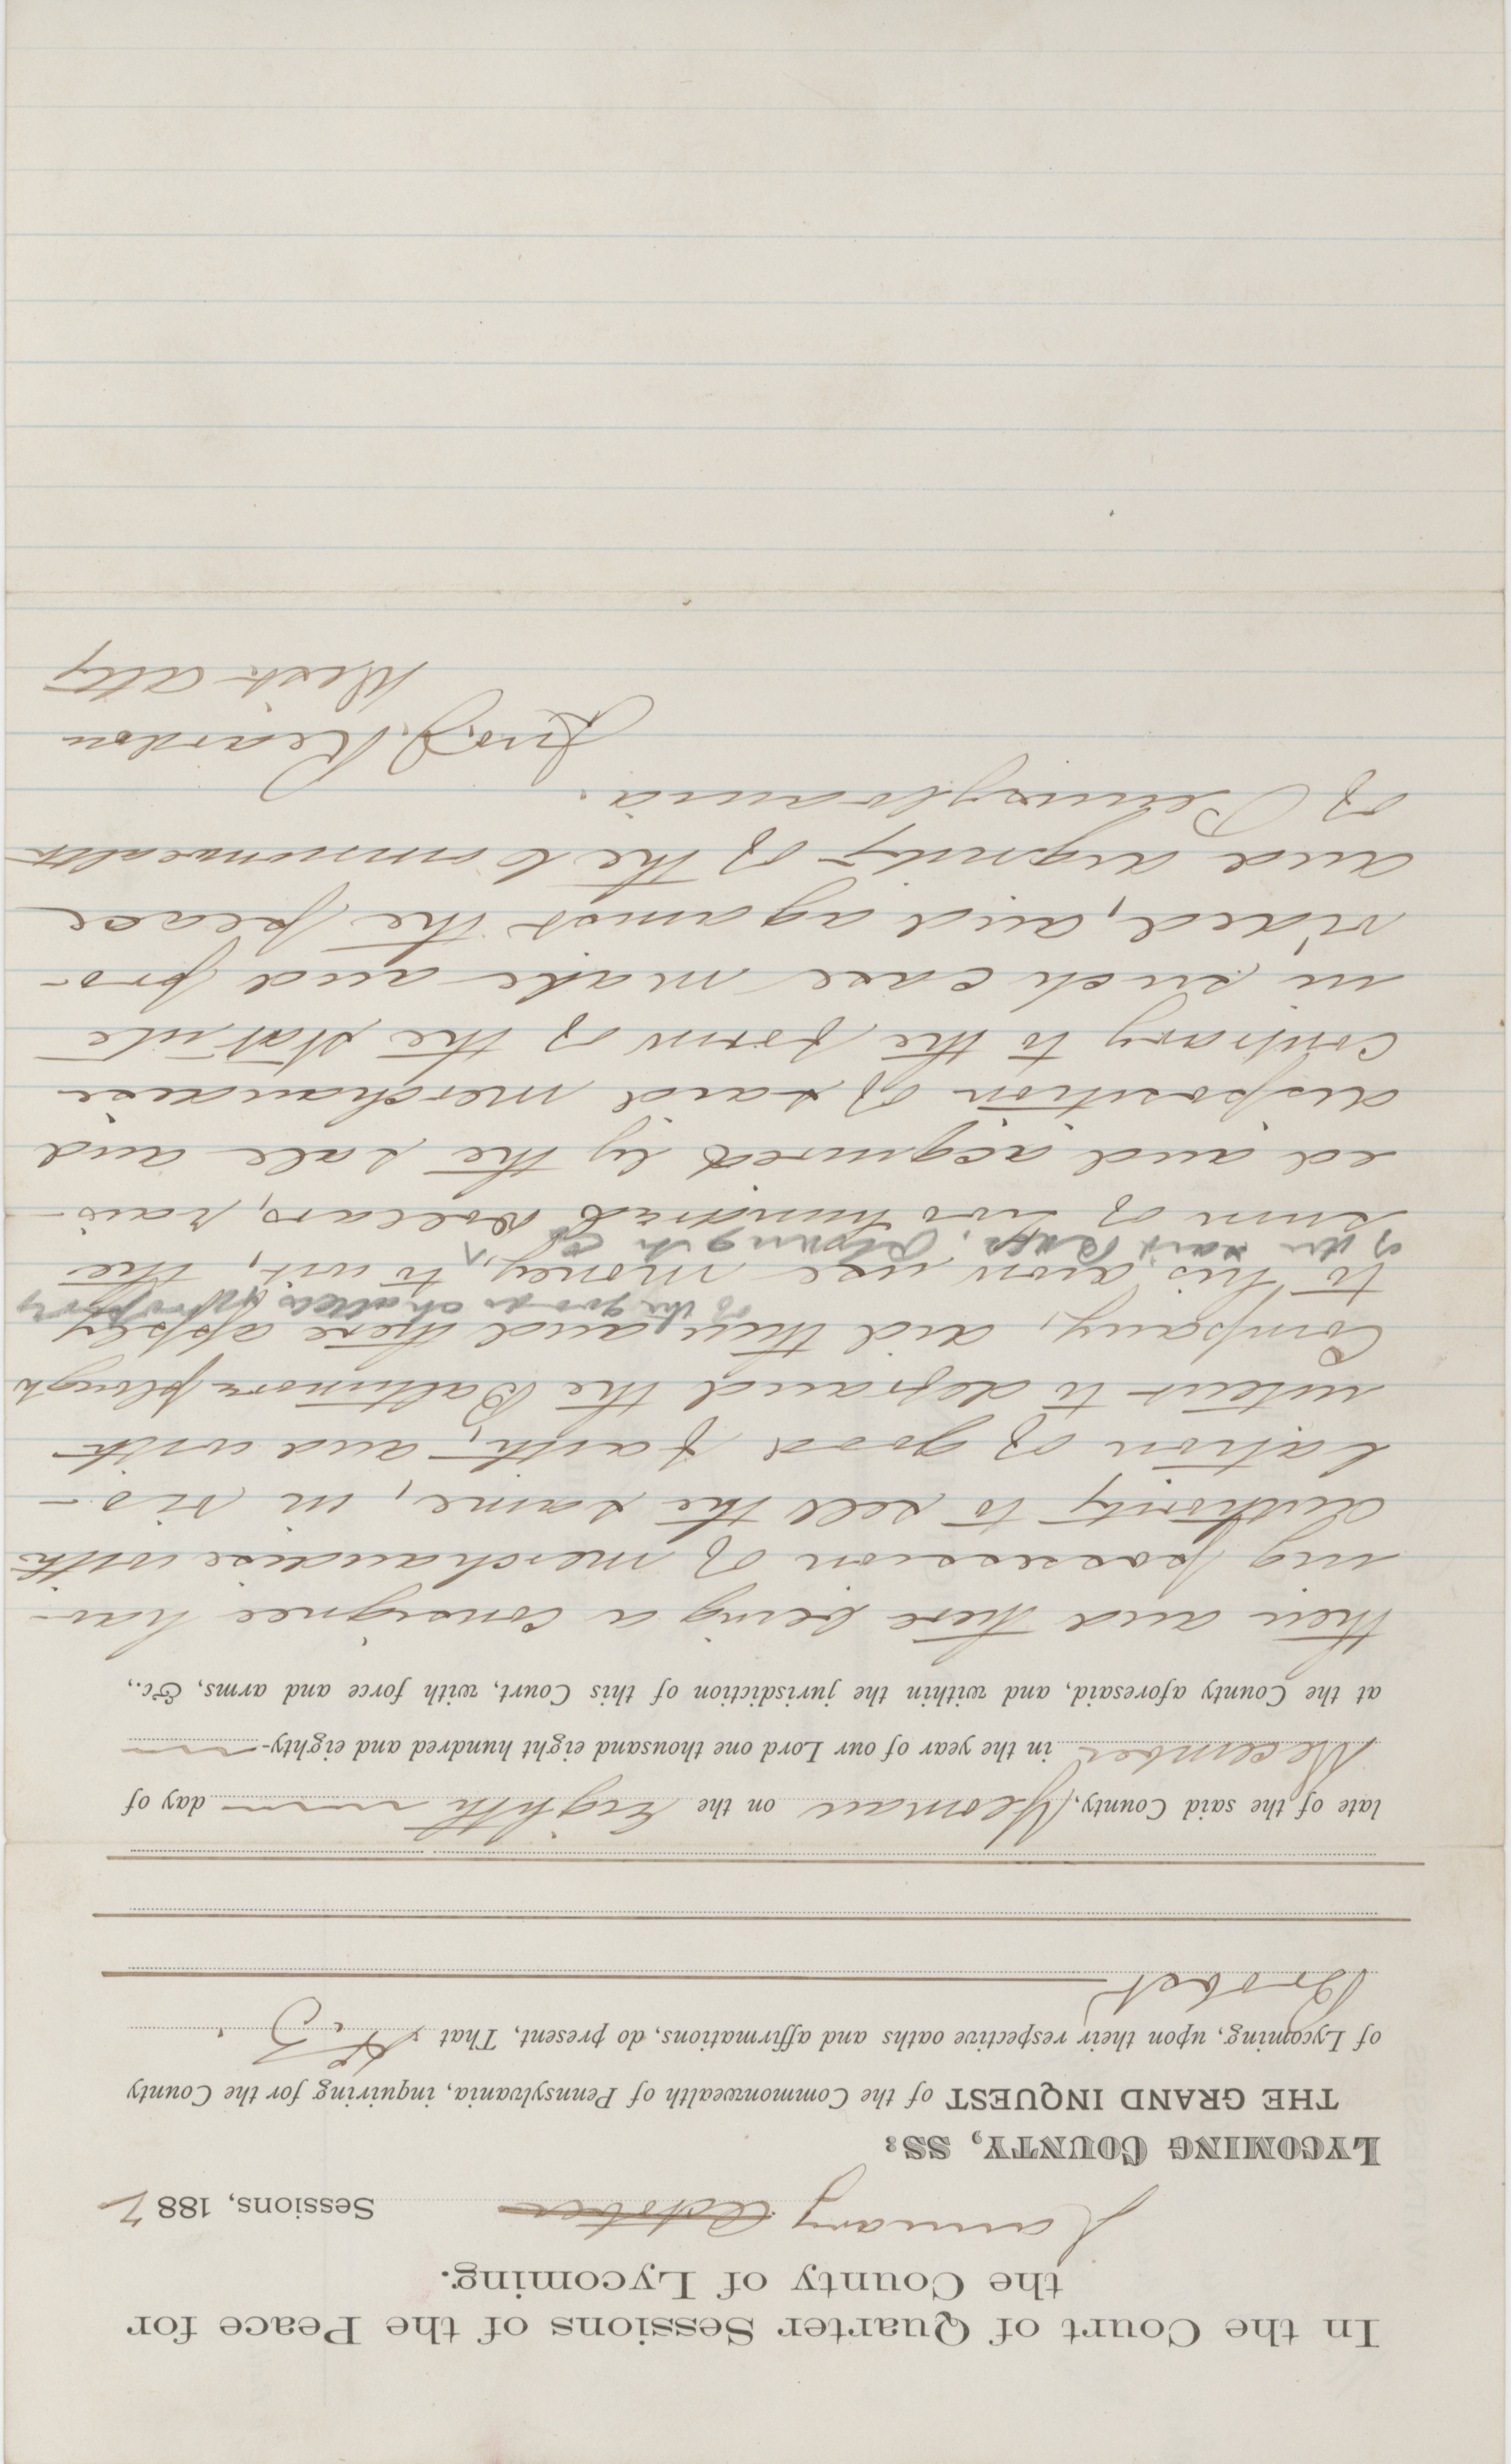 In the Court of Quarter Sessions of the Peace for
the County of Lycoming.
January October Sessions, 1882
LYCOMING COUNTY, SS:
THE GRAND INQUEST of the Commonwealth of Pennsylvania, inquiring for the County
of Lycoming, upon their respective oaths and affirmations, do present, That
Brobst
late of the said County, Yeoman on the Eighth day of
December in the year of our Lord one thousand eight hundred and eighty-
at the County aforesaid, and within the jurisdiction of this Court, with force and arms, &c.,
then and there being a consignee hav-
ing possession of merchandise with
authority to sell the same, in vio-
lation of good faith, and with
intent to defraud the Baltimore plough
Company, did then and there apply
of the goods chattels & property
to his own use money, to wit, the
of the said
sum of two hundred dollars, rais-
ed and acquired by the sale and
disposition of said merchandise
contrary to the form of the statute
in such case made and pro-
vided, and against the peace
and dignity of the Commonwealth
of Pennsylvania.
Jno. J. Reardon
Dist. atty